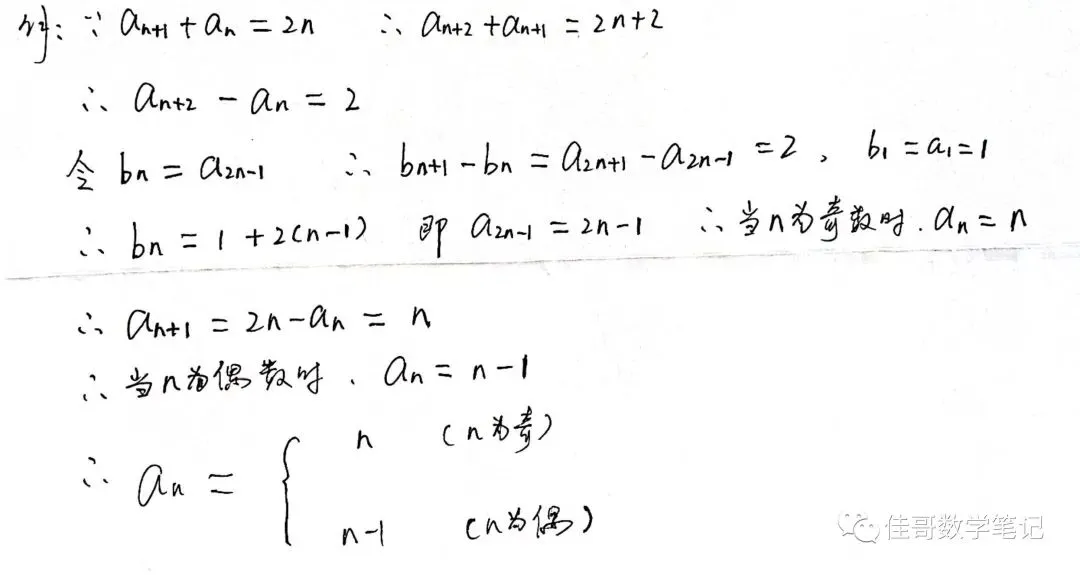 解：∵ aₙ₊₁ + aₙ = 2n ∴ aₙ₊₂ + aₙ₊₁ = 2n+2
∴ aₙ₊₂ - aₙ = 2
令 bₙ = a₂ₙ₋₁ ∴ bₙ₊₁ - bₙ = a₂ₙ₊₁ - a₂ₙ₋₁ = 2，b₁ = a₁ = 1
∴ bₙ = 1 + 2(n-1) 即 a₂ₙ₋₁ = 2n-1 ∴ 当n为奇数时．aₙ = n
∴ aₙ₊₁ = 2n - aₙ = n
∴ 当n为偶数时．aₙ = n-1
∴ aₙ = {
n （n为奇）
n-1 （n为偶）
佳哥数学笔记